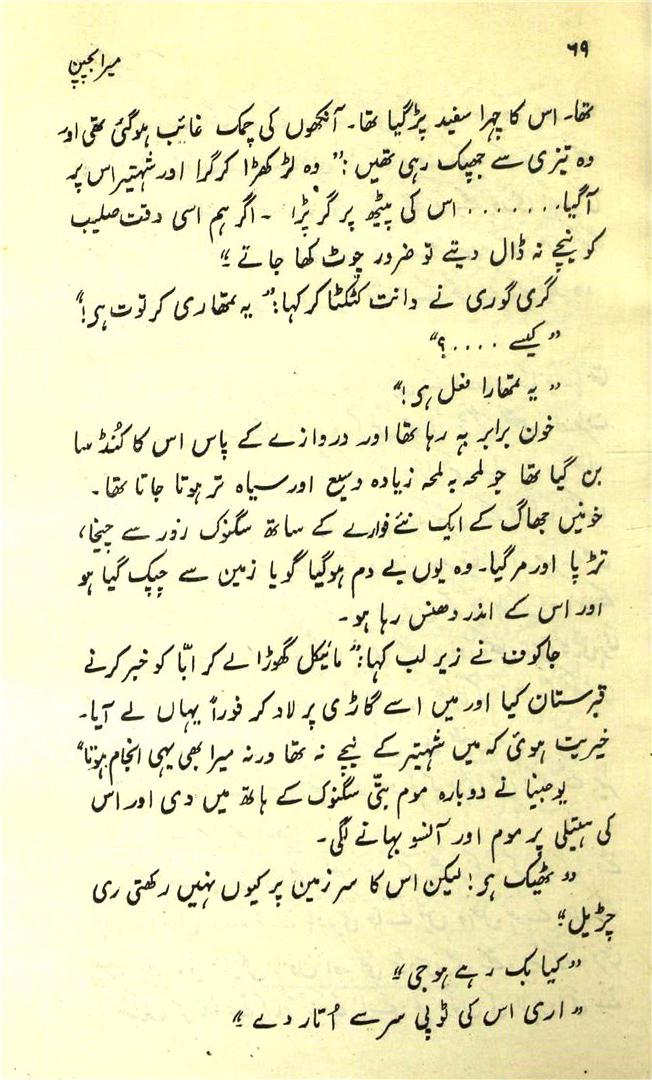 ۶۹
میرا بچپن
تھا۔ اس کا چہرا سفید پڑگیا تھا۔ آنکھوں کی چمک غائب ہوگئی تھی اور
وہ تیزی سے جھپک رہی تھیں :" وہ لڑ کھڑا کر گرا اور شہتیر اس پر
آگیا....... اس کی پیٹھ پر گر پڑا ۔ اگر ہم اسی وقت صلیب
کو نیچے نہ ڈال دیتے تو ضرور چوٹ کھا جاتے ۔"
گری گوری نے دانت کٹکٹا کر کہا :" یہ تمھاری کرتوت ہی !"
" کیسے ....؟"
" یہ تمھارا فعل ہی !"
خون برابر بہ رہا تھا اور دروازے کے پاس اس کا کُنڈ سا
بن گیا تھا جو لمحہ بہ لمحہ زیادہ وسیع اور سیاہ تر ہوتا جاتا تھا۔
خونیں جھاگ کے ایک نئے فوارے کے ساتھ سگنوک زور سے چیخا،
تڑپا اور مرگیا۔ وہ یوں بے دم ہوگیا گویا زمین سے چپک گیا ہو
اور اس کے اندر دھنس رہا ہو۔
جاکوف نے زیر لب کہا :" مائیکل گھوڑا لے کر ابّا کو خبر کرنے
قبرستان گیا اور میں اسے گاڑی پر لاد کر فوراً یہاں لے آیا۔
خیریت ہوئی کہ میں شہتیر کے نیچے نہ تھا ورنہ میرا بھی یہی انجام ہوتا"
یوجینا نے دوبارہ موم بتّی سگنوک کے ہاتھ میں دی اور اس
کی ہتیلی پر موم اور آنسو بہانے لگی۔
" ٹھیک ہی ! لیکن اس کا سر زمین پر کیوں نہیں رکھتی ری
چڑیل"
" کیا بک رہے ہو جی"
" اری اس کی ٹوپی سر سے اُتار دے ۔"